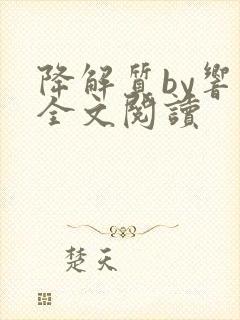 降解質by響
全文閱讀
楚天